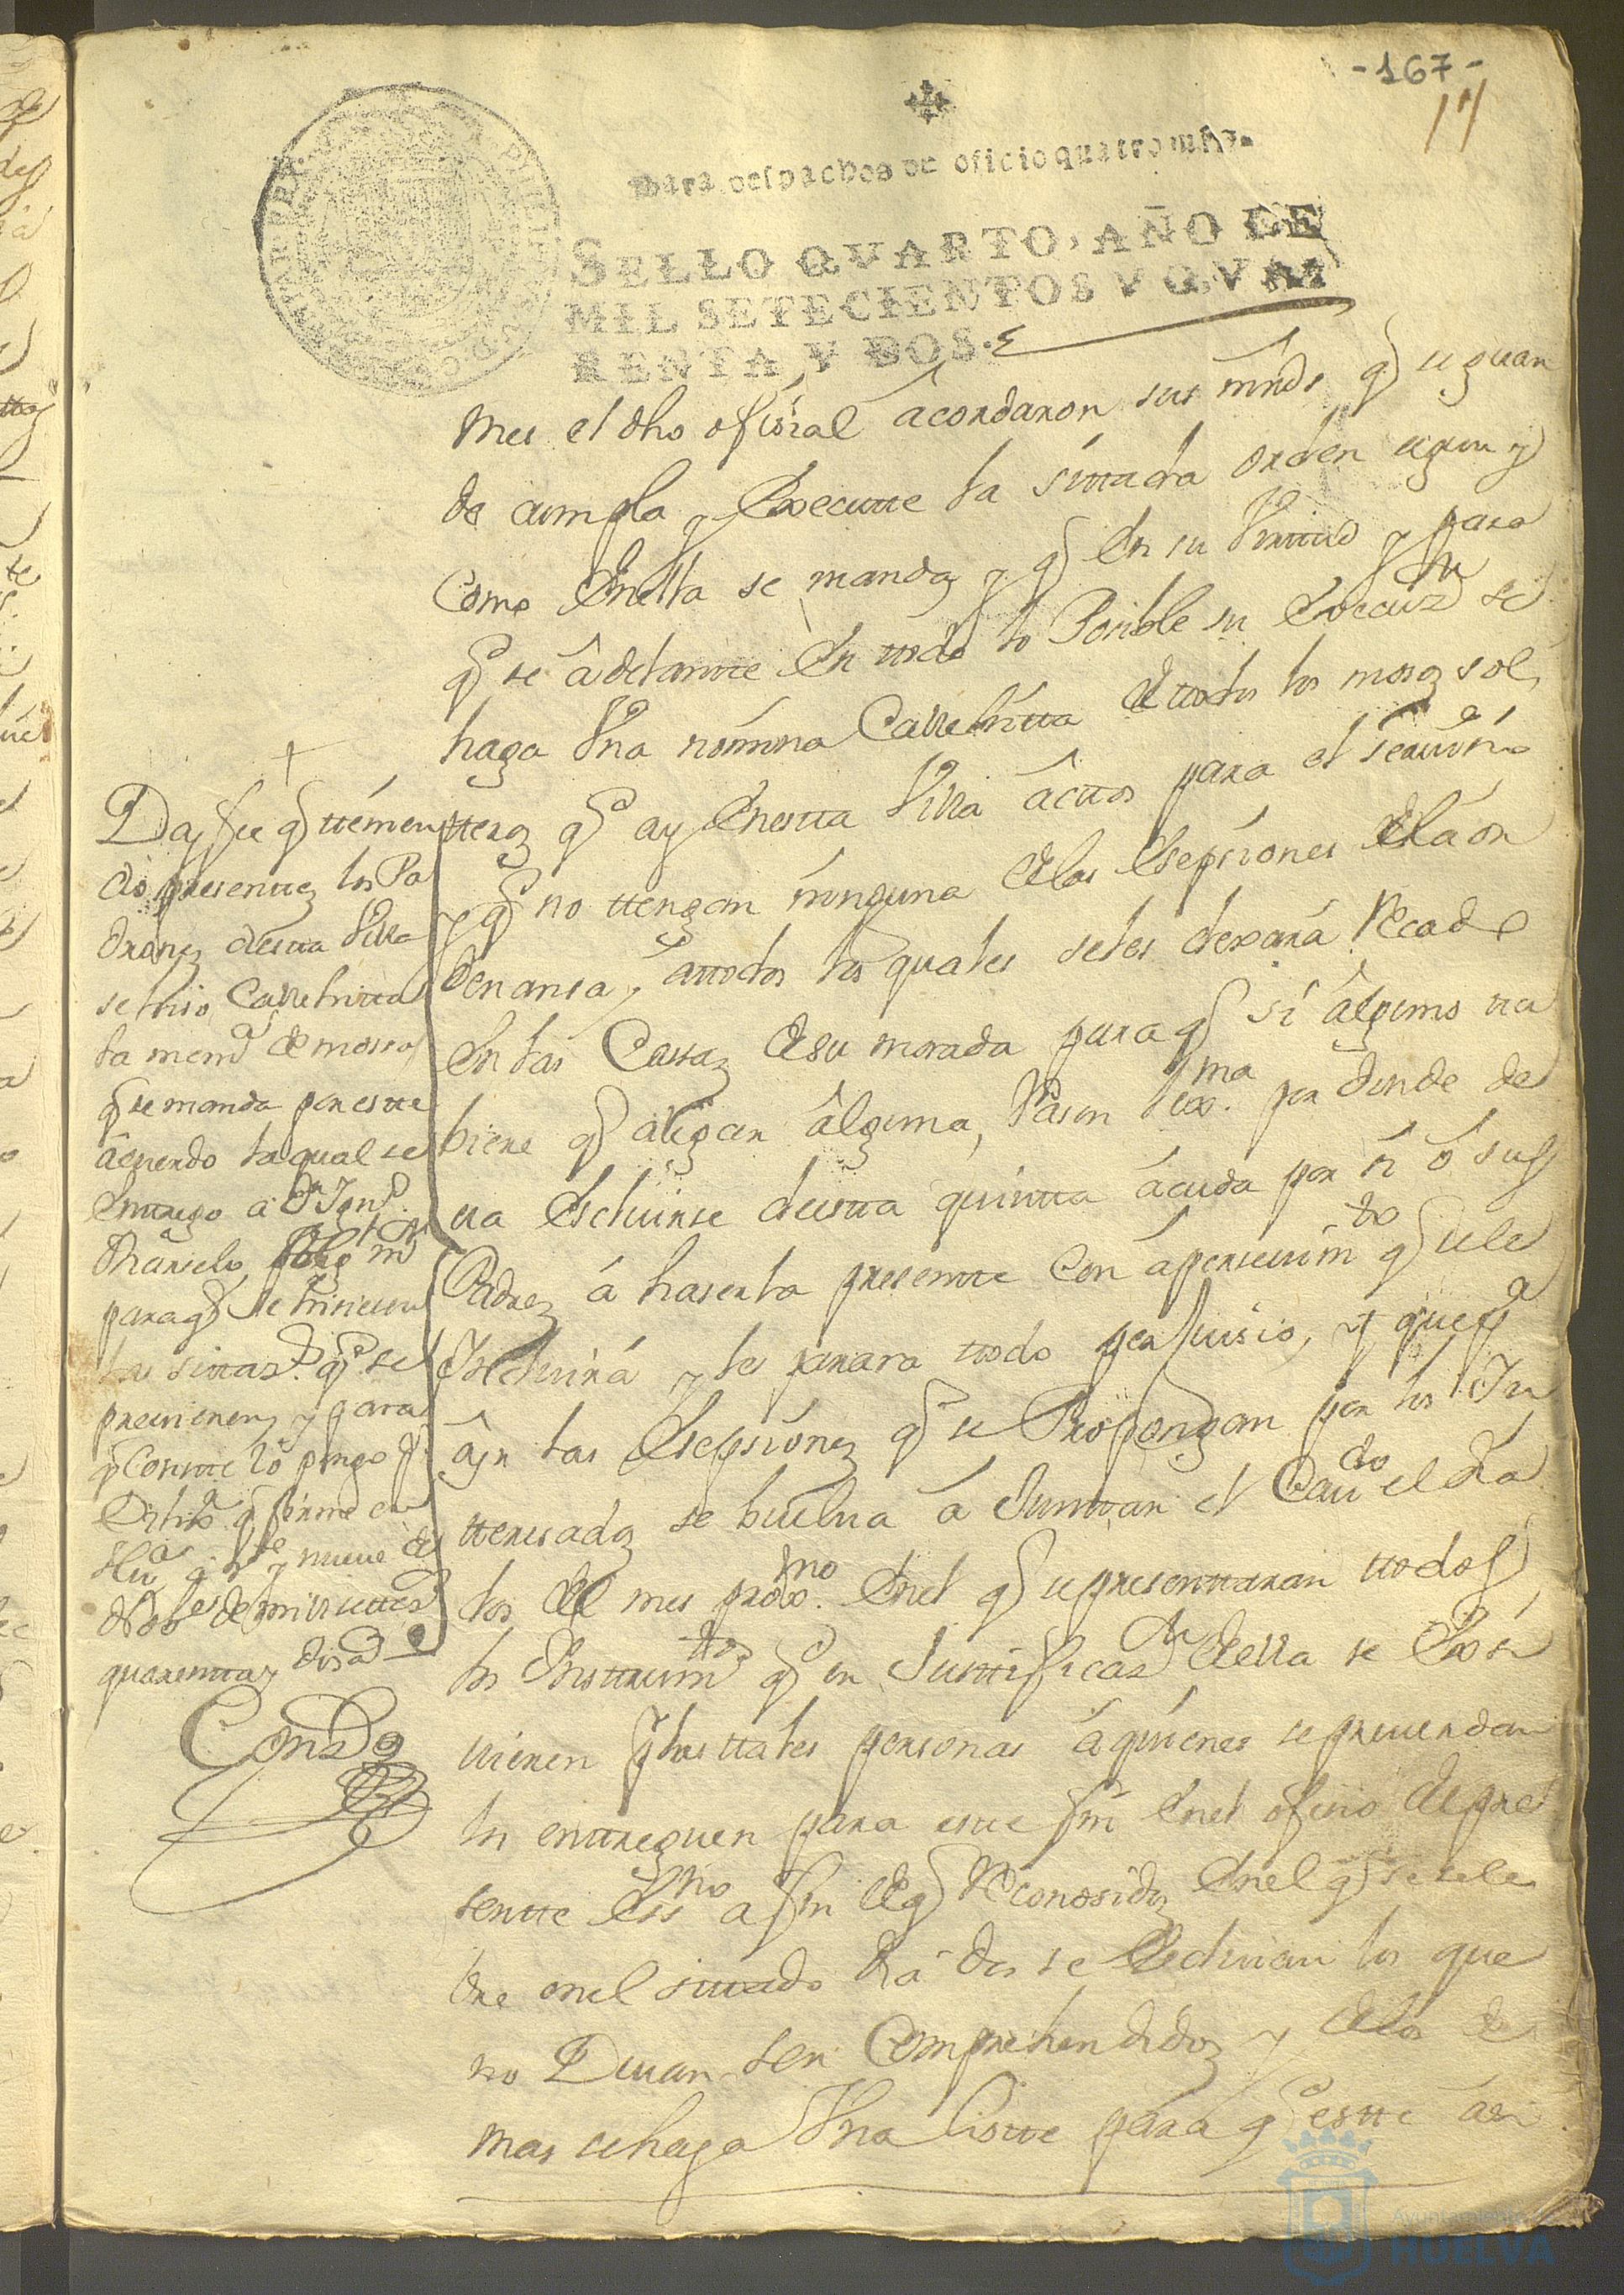 -167-
17
Para despachos de oficio quatro mrs.
SELLO QVARTO, AÑO DE
MIL SETECIENTOS Y QVA
RENTA Y DOS.
mes el dho ofisial acordaron sus mrds q se guar
de cumpla y Execute la sittada orden segun y
Como Enella se manda y q En su Virttud y para
q se adelantte En ttodo lo Posible su Execuzn se
haga Vna nomina Calle hitta de ttodos los mosos sol
tteros q ay Enestta Villa acttos para el seruisio
y q no ttengan ninguna delas Esepsiones dela or
denansa, attodos los quales seles dexara Recado
En las Cassas desu morada para q si alguno tu
biere q alegar alguna Rason lexma por donde de
ua Escluirse destta quintta acuda por si o sus
Padres a haserla presentte Con apersiuimto q sele
Incluira y les parara ttodo perjuisio, y que pa
las Esepsiones q se Propongan por los In
tteresados se buelua a Junttar el Caudo el dia
dos del mes proxmo Enel q se presenttaran ttodos
los Instrumtos q en Justtificazn della se Exsi
uieren por las ttales personas a quienes se preuendra
los enttreguen para este fin Enel ofisio del pre
sentte Essno a fin de q Reconosidos Enel q se sele
bre enel sittado dia dos se Escluian los que
no Deuan ser Comprehendidos y delos de
mas se haga Vna Listte para q estte asi
Doy fee q ttenien
do presenttes los Pa
drones destta Villa
se hiso Calle hitta
la memra de mosos
q se manda por estte
acuerdo la qual se
Enttrego a Dn Ignº
para q se hisiesen
las sittazs q se
preuienen y para
q Constte lo pongo pr
Dilixa q firme en
Hua a vte y nueue de
Nobre de mill settes
quarentta y dos as
Ayuntamiento de
HUELVA